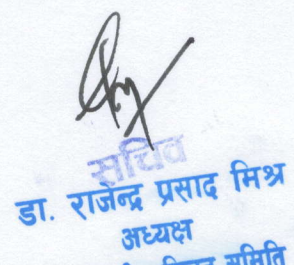 सचिव
डा. राजेन्द्र प्रसाद मिश्र
अध्यक्ष
समिति